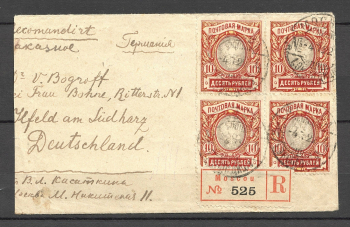 Recomandirt
Заказное
Германия
V. Bogroff
Frau Bohne, Ritterstr. №1
Ilfeld am Südharz
Deutschland.
В. Л. Касаткина
М. Никитская 11.
ПОЧТОВАЯ МАРКА
10 10
ДЕСЯТЬ РУБЛЕЙ
ПОЧТОВАЯ МАРКА
10 10
ДЕСЯТЬ РУБЛЕЙ
ПОЧТОВАЯ МАРКА
10 10
ДЕСЯТЬ РУБЛЕЙ
ПОЧТОВАЯ МАРКА
10 10
ДЕСЯТЬ РУБЛЕЙ
Moscou
№ 525
R